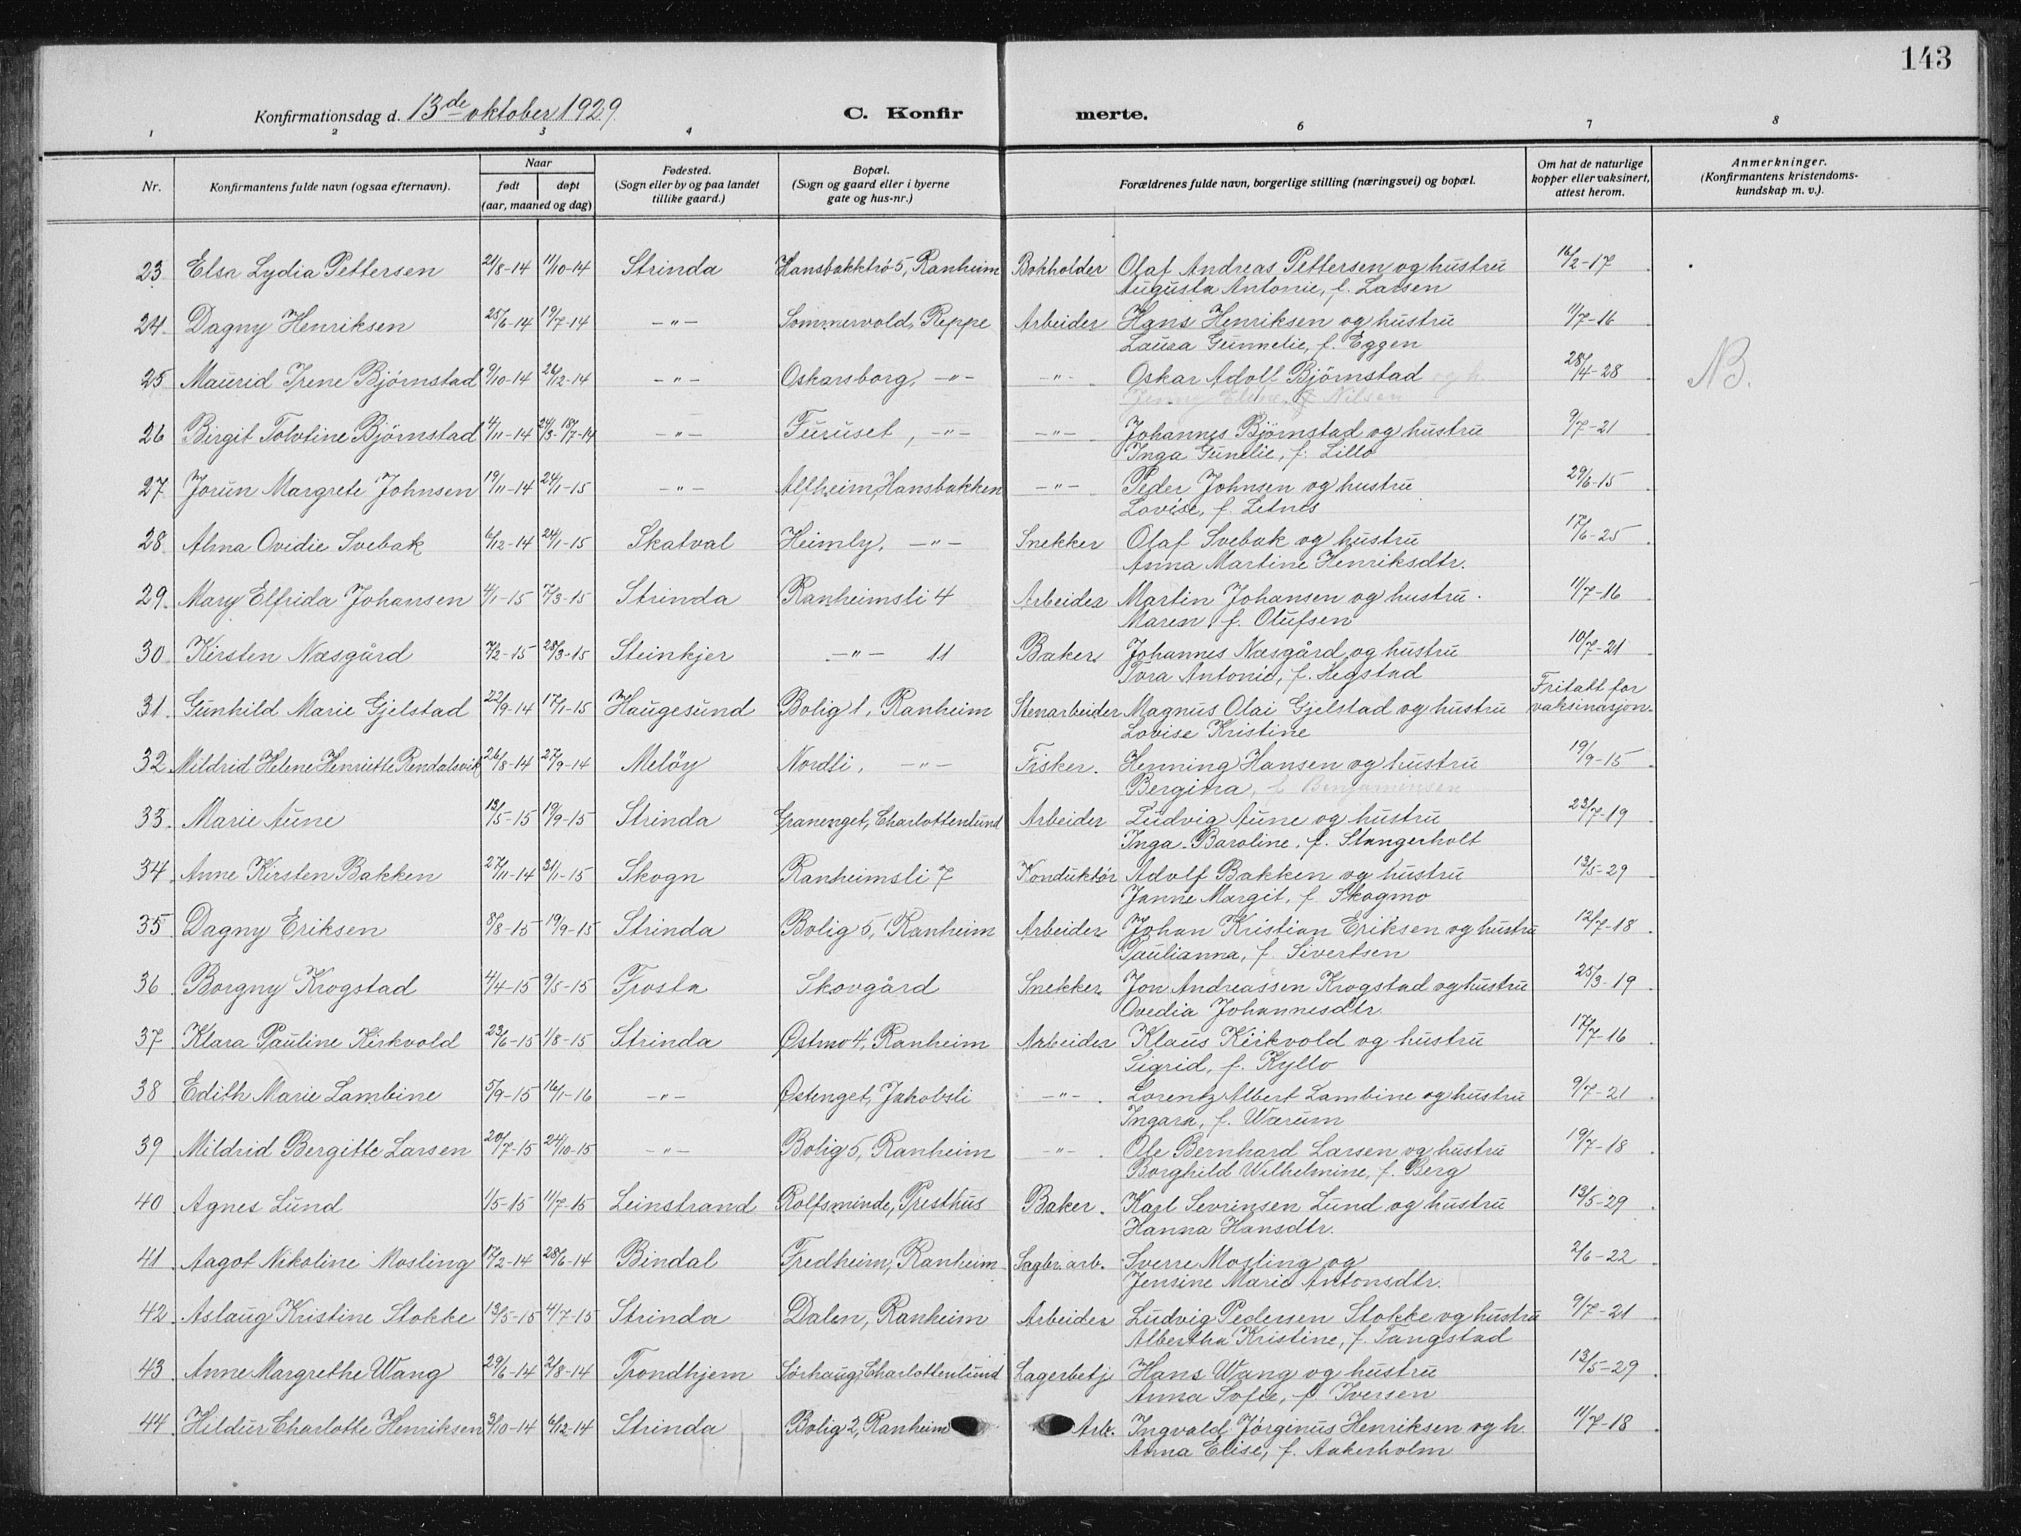 143
Konfirmationsdag d. 13de oktober 1929. C. Konfirmerte.
1 2 3 4 6 7 8
Nr. Konfirmantens fulde navn (ogsaa efternavn). Naar født døpt (aar, maaned og dag) Fødested. (Sogn eller by og paa landet tillike gaard.) Bopæl. (Sogn og gaard eller i byerne gate og hus-nr.) Forældrenes fulde navn, borgerlige stilling (næringsvei) og bopæl. Om hat de naturlige kopper eller vaksinert, attest herom. Anmerkninger. (Konfirmantens kristendomskundskap m. v.).
23 Elsa Lydia Pettersen 21/8-14 11/10-14 Strinda Hansbakktrø 5, Ranheim Bokholder Olaf Andreas Pettersen og hustru 16/2-17
Augusta Antonie, f. Larsen
24. Dagny Henriksen 25/6-14 19/7-14 -"- Sommervold, Reppe Arbeider Hans Henriksen og hustru 11/7-16
Laura Gunnelie, f. Eggen
25 Maurid Irene Bjørnstad 9/10-14 26/12-14 -"- Oskarsborg, -"- -"- Oskar Adolf Bjørnstad og h. 28/4-28 NB.
Jenny f. Nilsen
26 Birgit Tolvtine Bjørnstad 4/11-14 -"- Furuset, -"- -"- Johannes Bjørnstad og hustru 9/7-21
Inga Gunelie, f. Lillo
27 Jorun Margrete Johnsen 19/11-14 24/1-15 -"- Alfheim, Hansbakken -"- Peder Johnsen og hustru 29/6-15
Lovise, f. Letnes
28 Alma Ovidie Svebak 6/12-14 24/1-15 Skatval Heimly, -"- Snekker Olaf Svebak og hustru 17/6-25
Anna Martine Henriksdtr.
29. Mary Elfrida Johansen 4/1-15 7/3-15 Strinda Ranheimsli 4 Arbeider Martin Johansen og hustru. 11/7-16
Maren, f. Olufsen
30 Kirsten Næsgård 7/2-15 28/3-15 Steinkjer -"- 11 Baker Johannes Næsgård og hustru 10/7-21
Tora Antonie, f. Hegstad
31. Gunhild Marie Gjelstad 22/9-14 17/1-15 Haugesund Bolig 1, Ranheim Stenarbeider Magnus Olai Gjelstad og hustru Fritatt for vaksinasjon.
Lovise Kristine
32. Mildrid Helene Henriette Rendalsvik 26/8-14 27/9-14 Meløy Nordli, -"- Fisker. Henning Hansen og hustru 19/9-15
Bergina, f. Benjaminsen
33. Marie Aune 13/5-15 19/9-15 Strinda Granenget, Charlottenlund Arbeider Ludvig Aune og hustru 23/7-19
Inga Baroline, f. Stangerholt
34 Anne Kirsten Bakken 27/11-14 31/1-15 Skogn Ranheimsli 7 Konduktør Adolf Bakken og hustru 13/5-29
Janne Margit, f. Skogmo
35 Dagny Eriksen 8/8-15 19/9-15 Strinda Bolig 5, Ranheim Arbeider Johan Kristian Eriksen og hustru 12/7-18
Paulianna, f. Sivertsen
36 Borgny Krogstad 4/4-15 9/5-15 Frosta Skovgård Snekker Jon Andreassen Krogstad og hustru 25/3-19
Ovedia Johannesdtr.
37 Klara Pauline Kirkvold 23/6-15 1/8-15 Strinda Østmo 4, Ranheim Arbeider Klaus Kirkvold og hustru 17/7-16
Sigrid, f. Kyllo
38 Edith Marie Lambine 5/9-15 16/1-16 -"- Østenget, Jakobsli -"- Lorentz Albert Lambine og hustru 9/7-21
Ingara, f. Wærum
39 Mildrid Bergitte Larsen 20/7-15 24/10-15 -"- Bolig 5, Ranheim -"- Ole Bernhard Larsen og hustru 19/7-18
Borghild Wilhelmine, f. Berg
40 Agnes Lund 1/5-15 11/7-15 Leinstrand Rolfsminde, Presthus Baker. Karl Sevrinsen Lund og hustru 13/5-29
Hanna Hansdtr.
41. Aagot Nikoline Mosling 17/2-14 28/6-14 Bindal Fredheim, Ranheim Sagbr. arb. Sverre Mosling og 2/6-22
Jensine Marie Antonsdtr.
42 Aslaug Kristine Stokke 13/5-15 4/7-15 Strinda Dalen, Ranheim Arbeider Ludvig Pedersen Stokke og hustru 9/7-21
Albertha Kristine, f. Tangstad
43 Anne Margrethe Wang 29/6-14 2/8-14 Trondhjem Sørhaug, Charlottenlund Lagerbetj. Hans Wang og hustru 13/5-29
Anna Sofie, f. Iversen
44 Hildur Charlotte Henriksen 3/10-14 6/12-14 Strinda Bolig 2, Ranheim Arb. Ingvald Jørginus Henriksen og h. 11/7-18
Anna Elise, f. Aakerholm